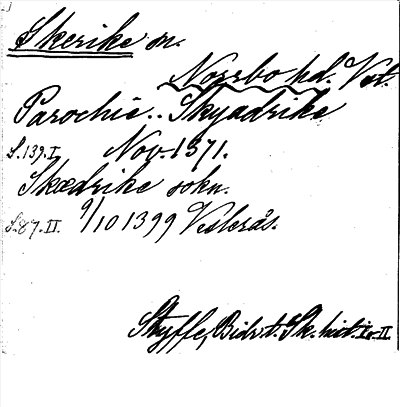 Skerike sn.
Norrbo hd. Vstm.
Parochie.. Skyadrike
S.139.I. Nov. 1371.
Skædrike sokn.
S.87.II. 9/10 1399 Vesterås.
Styffe, Bidr. t. Sk. hist. I o. II